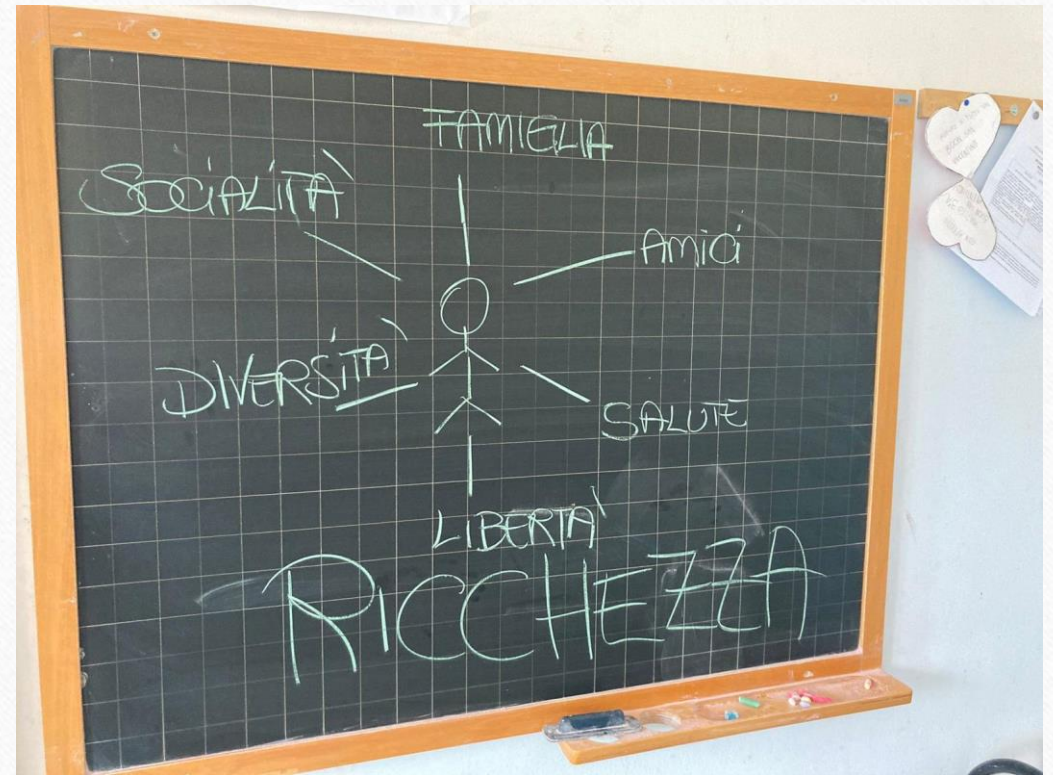 FAMIGLIA
SOCIALITÀ
AMICI
DIVERSITÀ
SALUTE
LIBERTÀ
RICCHEZZA